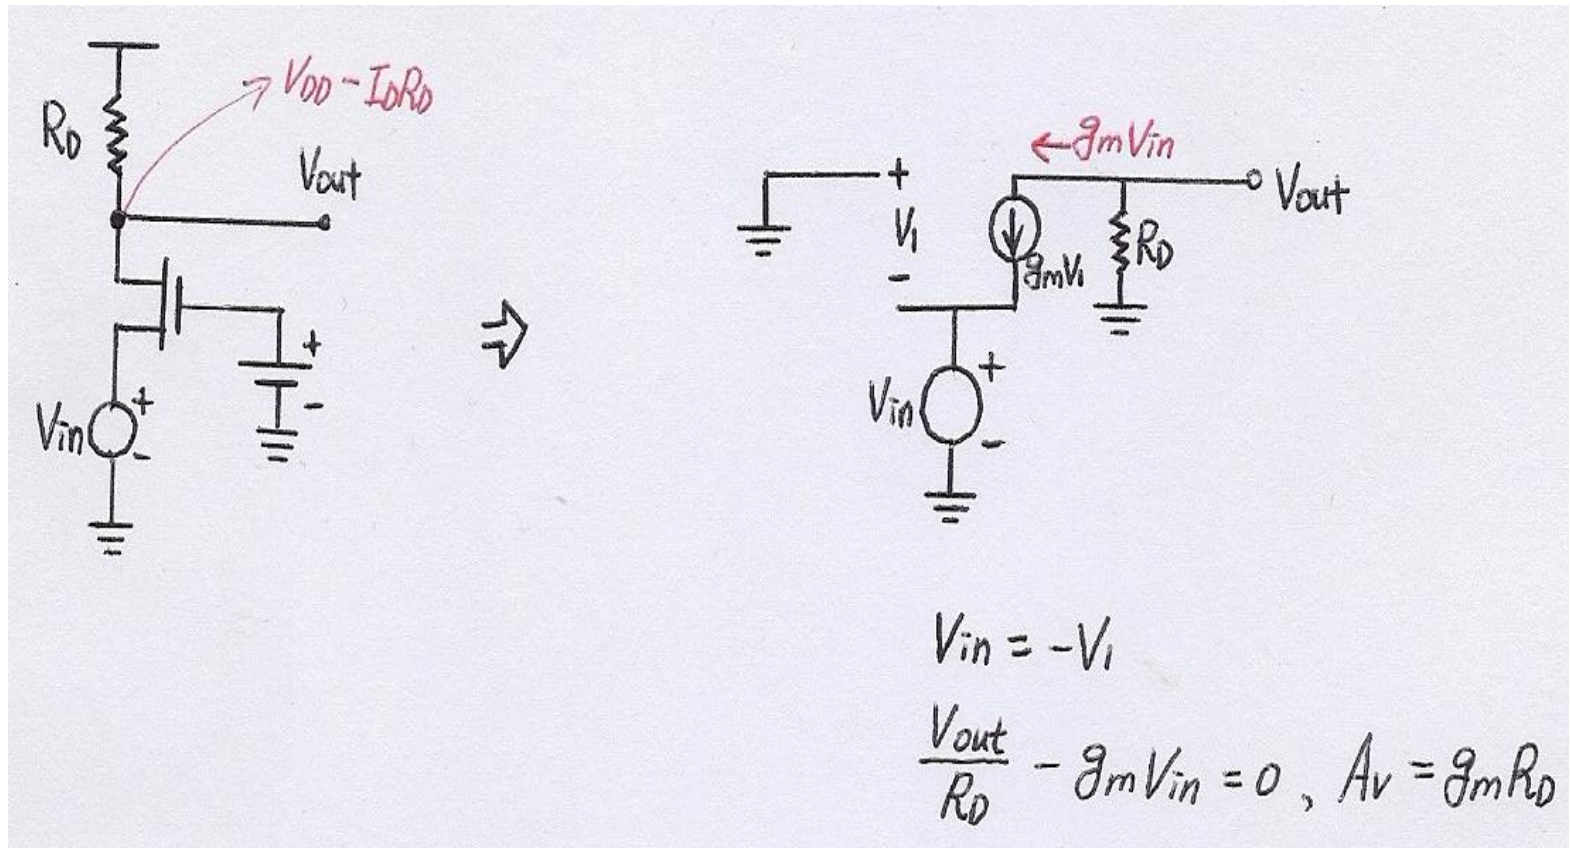 VDD - IDRD
RD
Vout
+
Vin
-
+
-
⇒
←gmVin
+
V1
-
gmV1
RD
Vout
Vin
+
-
Vin = -V1
Vout/RD - gmVin = 0, Av = gmRD